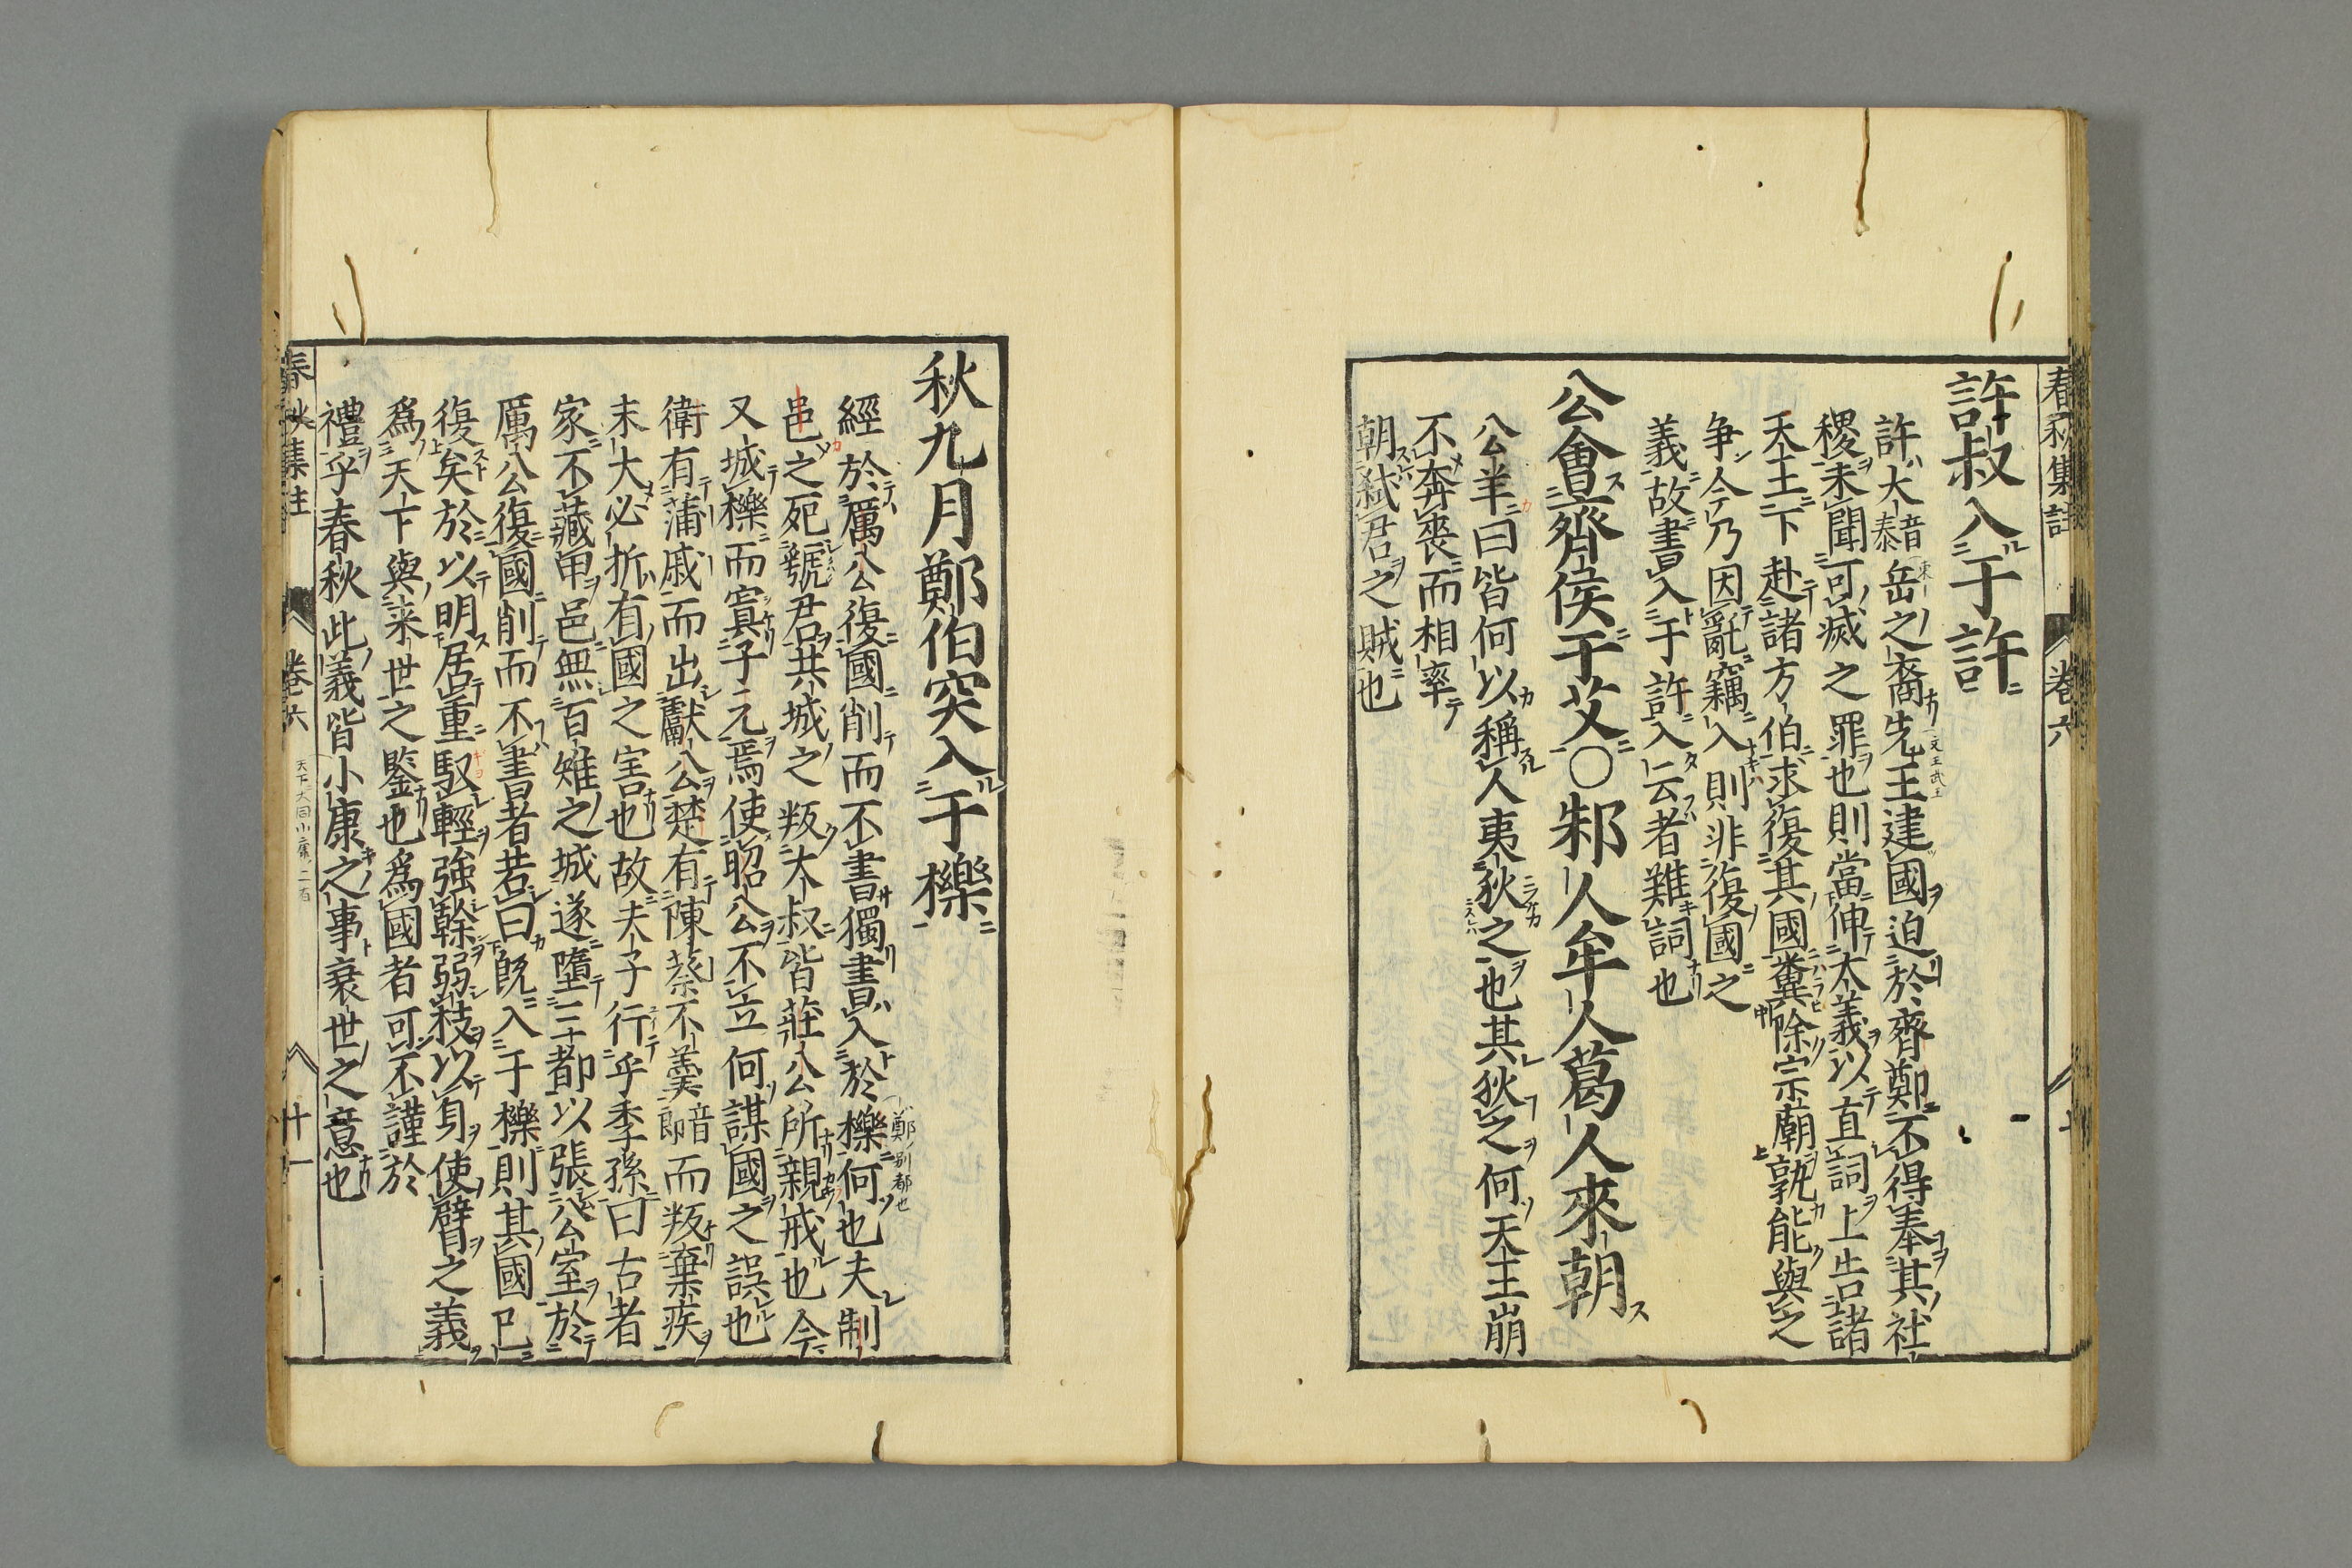 春秋集註 卷六 十
許叔入于許
許大音泰岳之裔先王建國迫於齊鄭不得奉其社
稷未聞可滅之罪也則當伸大義以直詞上告諸
天王下赴諸方伯求復其國糞除宗廟孰能與之
争今乃因亂竊入則非復國之
義故書入于許入云者難詞也
公會齊侯于艾〇邾人牟人葛人來朝
公羊曰皆何以稱人夷狄之也其狄之何天王崩
不奔喪而相率
朝弑君之賊也
秋九月鄭伯突入于櫟
經於厲公復國削而不書獨書入於櫟何也夫制
邑之死虢君共城之叛太叔皆莊公所親戒也今
又城櫟而寘子元焉使昭公不立何謀國之誤也
衛有蒲戚而出獻公楚有陳蔡不羹音郎而叛棄疾
末大必折有國之害也故夫子行乎季孫曰古者
家不藏甲邑無百雉之城遂墮三都以張公室於
厲公復國削而不書者若曰旣入于櫟則其國已
復矣於以明居重馭輕強榦弱枝以身使臂之義
爲天下與来世之鑒也爲國者可不謹於
禮乎春秋此義皆小康之事衰世之意也
春秋集註 卷六 十一